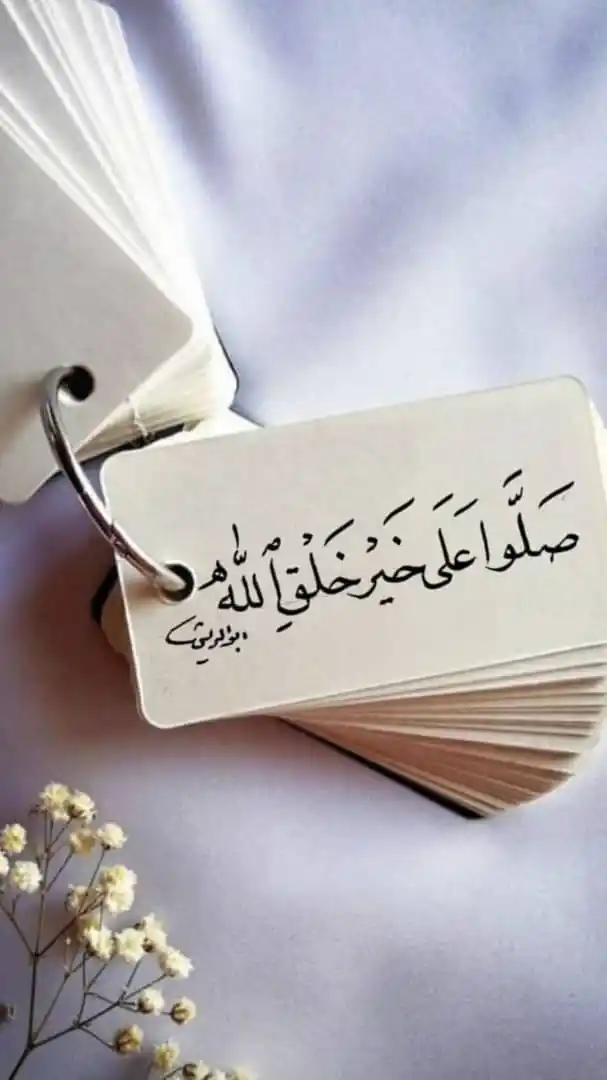 صَلَّوا عَلَى خَيْرِ خَلْقِ اللّٰه